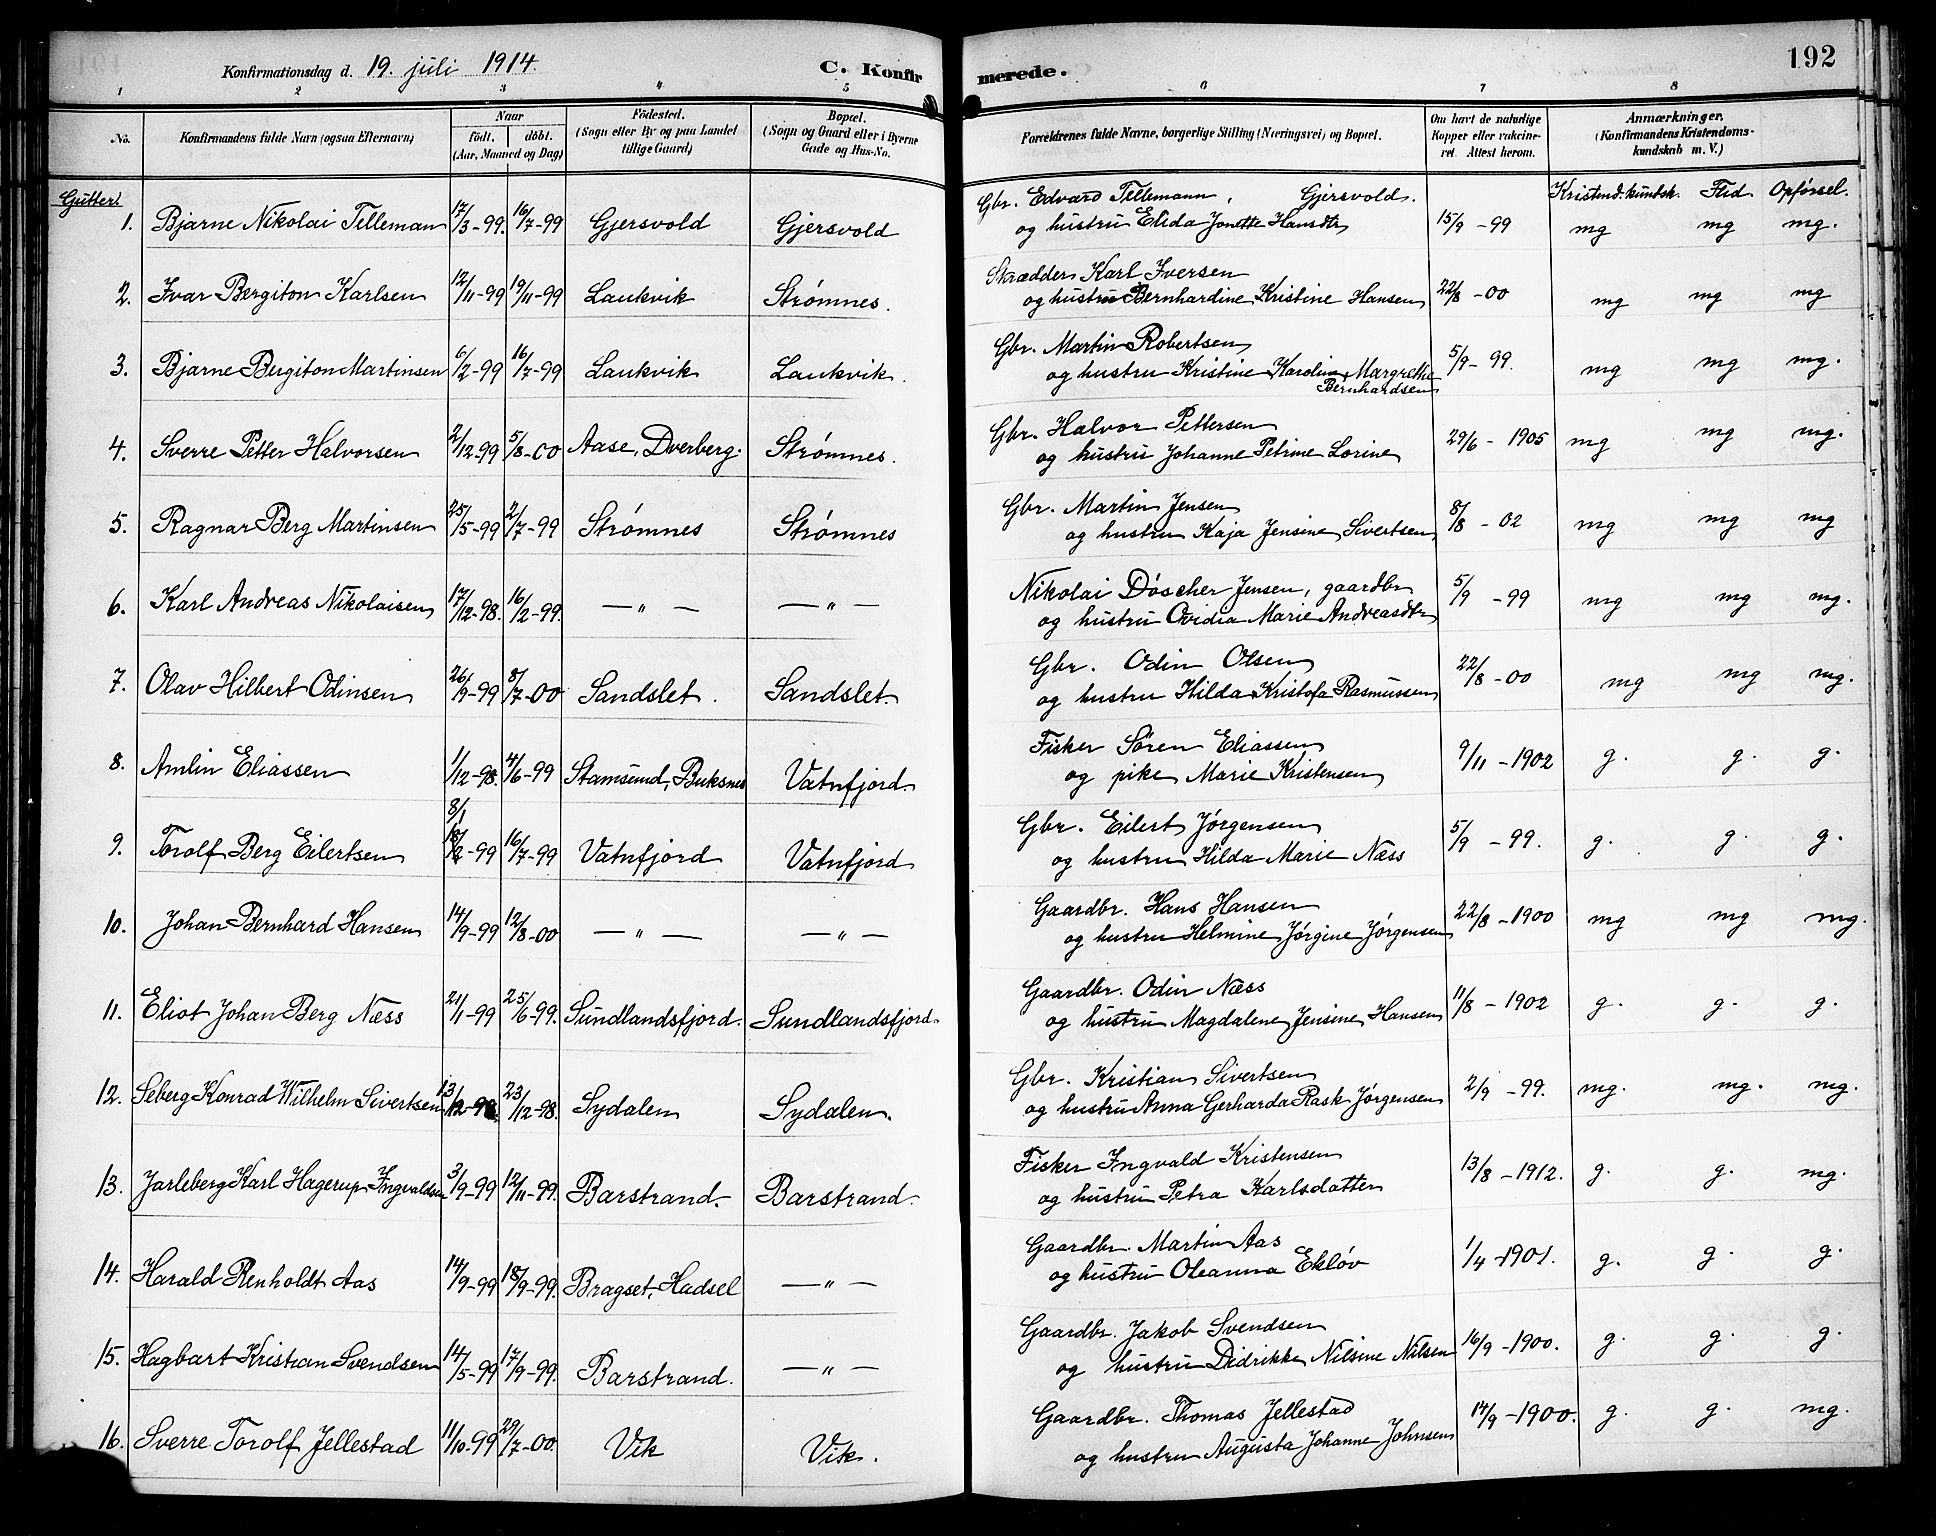 Konfirmationsdag d. 19. juli 1914. C. Konfirmerede. 192
1 2 3 4 5 6 7 8
No. Konfirmandens fulde Navn (ogsaa Efternavn) Naar født. døbt. (Aar, Maaned og Dag) Födested. (Sogn eller By og paa Landet tillige Gaard) Bopæl. (Sogn og Gaard eller i Byerne Gade og Hus-No. Forældrenes fulde Navne, borgerlige Stilling (Næringsvei) og Bopæl. Om havt de naturlige Kopper eller vakcineret. Attest herom. Anmærkninger. (Konfirmandens Kristendomskundskab m. V.)
Gutter: Kristend.kundsk. Flid Opførsel.
1. Bjarne Nikolai Tilleman 17/3-99. 16/7-99 Gjersvold Gjersvold Gbr. Edvard Tillemann, Gjersvold.
og hustru Elida Jonette Hansdtr 15/9-99 mg mg mg.
2. Ivar Bergiton Karlsen 12/11-99 19/11-99 Laukvik Strømnes. Skrædder Karl Iversen
og hustru Bernhardine Kristine Hansen 22/8-00 mg mg mg
3. Bjarne Bergiton Martinsen 6/2-99 16/7-99 Laukvik Laukvik. Gbr. Martin Robertsen
og hustru Kristine Karoline Margrethe Bernhardsen 5/9-99. mg mg mg.
4. Sverre Petter Halvorsen 2/12-99 5/8-00 Aase, Dverberg. Strømnes. Gbr. Halvor Pettersen
og hustru Johanne Petrine Lorine 29/6-1905 mg mg mg.
5. Ragnar Berg Martinsen 25/5-99 2/7-99 Strømnes Strømnes Gbr. Martin Jensen
og hustru Kaja Jensine Sivertsen 8/8-02 mg mg mg
6. Karl Andreas Nikolaisen 17/12-98. 16/2-99. —"— —"— Nikolai Döscher Jensen, gaardbr
og hustru Ovidia Marie Andreasdtr 5/9-99 mg mg mg.
7. Olav Hilbert Odinsen 26/9-99 8/7-00 Sandslet. Sandslet. Gbr. Odin Olsen
og hustru Hilda Kristofa Rasmussen 22/8-00 mg mg mg.
8. Amlin Eliassen 1/12-98. 4/6-99 Stamsund, Buksnes Vatnfjord. Fisker Sören Eliassen
og pike Marie Kristensen 9/11-1902 g. g. g.
8/1
9. Torolf Berg Eilertsen 18/2-99 16/7-99 Vatnfjord Vatnfjord Gbr. Eilert Jørgensen
og hustru Hilda Marie Næss 5/9-99. g. g. g.
10. Johan Bernhard Hansen 14/9-99 12/8-00 —"— —"— Gaardbr. Hans Hansen
og hustru Helmine Jørgine Jørgensen 22/8-1900 mg mg mg.
11. Eliot Johan Berg Næss 21/1-99 25/6-99. Sundlandsfjord. Sundlandsfjord. Gaardbr. Odin Næss
og hustru Magdalene Jensine Hansen 11/8-1902 g. g. g.
12. Seberg Konrad Wilhelm Sivertsen 13/12-98. 23/12-98. Sydalen Sydalen. Gbr. Kristian Sivertsen
og hustru Anna Gerharda Rask Jørgensen 2/9-99. mg. mg. mg.
13. Jarleberg Karl Hagerup Ingvaldsen 3/9-99 12/11-99. Barstrand. Barstrand. Fisker Ingvald Kristensen
og hustru Petra Karlsdatter 13/8-1912. g. g. mg.
14. Harald Renholdt Aas 14/9-99 18/9-99. Bragset, Hadsel —"— Gaardbr. Martin Aas
og hustru Oleanna Ekløv 1/4-1901. g. g. g.
15. Hagbart Kristian Svendsen 14/5-99 17/9-99. Barstrand. —"— Gaardbr. Jakob Svendsen
og hustru Didrikke Nilsine Nilsen 16/9-1900. g. g. g.
16. Sverre Torolf Jellestad 11/10-99 29/7-00. Vik Vik. Gaardbr. Thomas Jellestad
og hustru Augusta Johanne Johnsen 14/9-1900. g. g. mg.